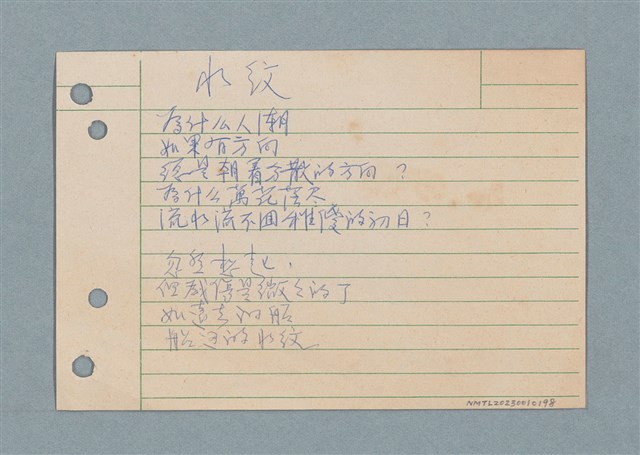 水紋
為什么人潮
如果有方向
總是朝着分散的方向？
為什么萬花落尽
流水流不回稚傻的初日？
忽然想起，
但感傷是微々的了
如遠去的船
船边的水紋
NMTL20230010198